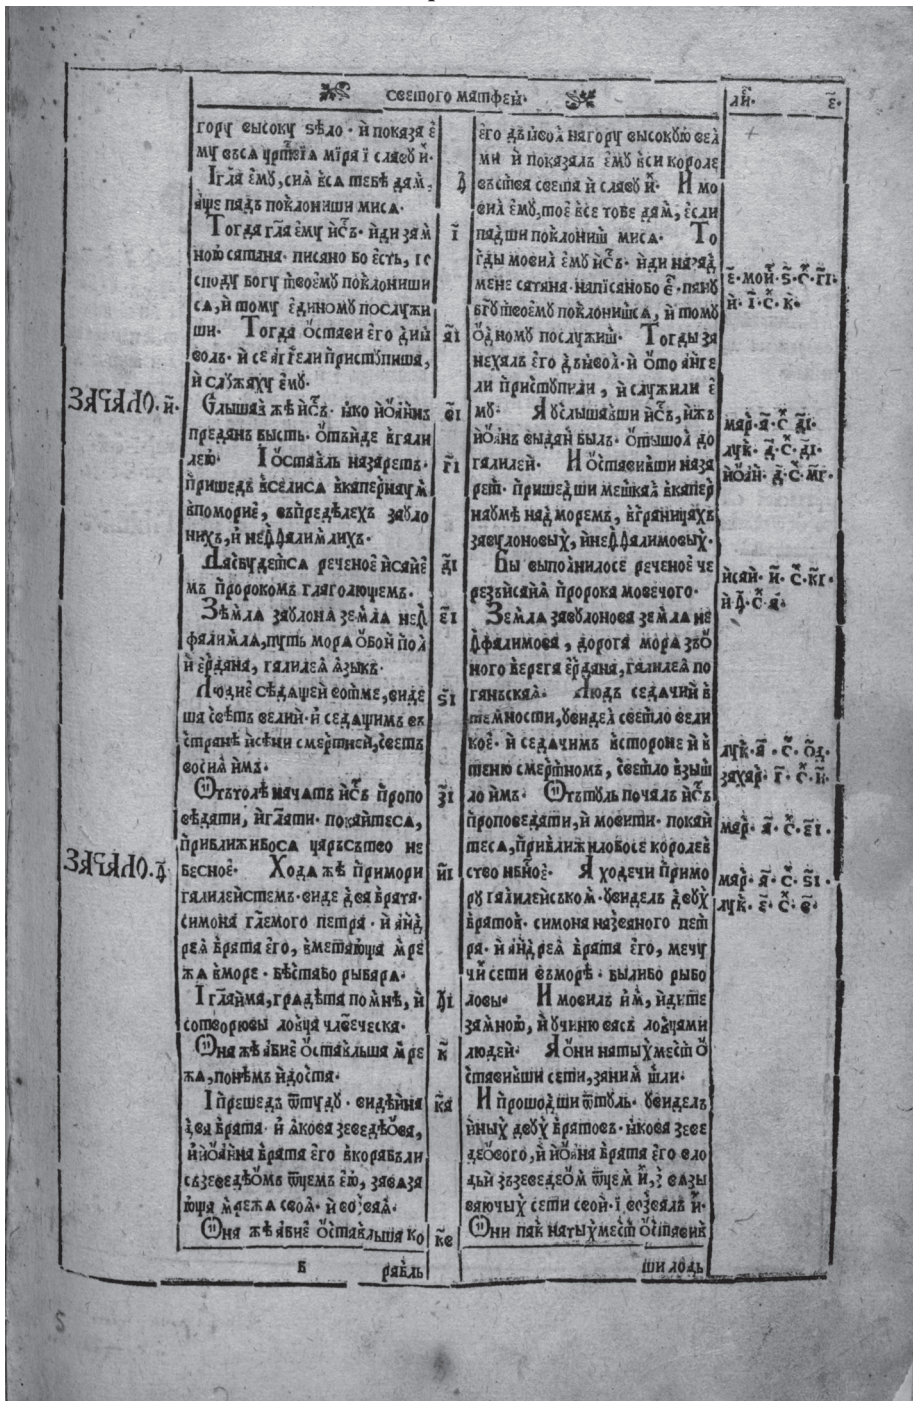 светого матфеѧ·
ли҃· е҃·
гору высоку ѕѣло· и҆ показа е҆
му всѧ цр҃твїѧ мїра ї славу и҆х·
І гл҃а ему, сиѧ всѧ тебѣ дам,
аще падъ поклониши миса·
Тогда гл҃а ему и҆с҃ъ· иди зам
ною сатана· писано бо есть, го
споду богу твоему поклониши
сѧ, и҆ тому единому послужи
ши· Тогда о҆стави его диꙗ
волъ· и҆ се аг҃гели приступиша,
и҆ служаху ему·
Слышав же и҆с҃ъ· ꙗко иѡаннъ
преданъ бысть· отъиде вгали
лею· І оставль назаретъ·
пришедъ вселисѧ вкапернаум
впоморие, въпределехъ зауло
нихъ, и҆ неффалимлихъ·
Дасбудетсѧ реченое исаие
мъ пророкомъ глаголющемъ·
Землѧ заулонѧ землѧ неф
фалимлѧ, путь морѧ обон пол
и҆ ердана, галилеѧ ѧзыкъ·
Людие сѣдѧщеи вотме, виде
ша светъ велии· и҆ седѧщимъ въ
стране исени смертнеи, светъ
восиѧ имъ·
Ѿтътоле начатъ и҆с҃ъ пропо
вѣдати, и҆ гл҃ати· покаитесѧ,
приближибосѧ царьство не
бесное· Ходѧ же примори
галилеистемъ· виде два брата·
симона гл҃емого петра· и҆ анд
реѧ брата его, вметающа мре
жа вморе· бѣстабо рыбарѧ·
І гл҃аима, грѧдѣта помне, и҆
сотворювы ловца члв҃еческа·
Она же абие оставльша мре
жа, понемъ идоста·
І прешедъ ѿтуду· види ина
два брата· и҆ ꙗкова зеведѣова,
и҆ иѡанна брата его вкорабьли
съзеведѣомъ ѿцемъ ею, завѧза
юща мрежа своѧ· и҆ возваѧ·
Она же абие оставльша ко
раблъ
Б
ЗАЧАЛО· и҃·
ЗАЧАЛО· ѳ҃·
ѳ҃
і҃
а҃і
в҃і
г҃і
д҃і
е҃і
ѕ҃і
з҃і
и҃і
ѳ҃і
к҃
к҃а
к҃в
его дъꙗвол нагору высокую вел
ми и҆ показалъ ему вси короле
въства света и҆ славу и҆х· И мо
вил ему, тое все тобе дам, если
падши поклониш миса· То
гды мовил ему и҆с҃ъ· иди назад
мене сатана· написанобо ес, пану
б҃гу твоему поклонишсѧ, и҆ тому
одному послужиш· Тогды за
нехалъ его дъꙗвол· и҆ ото анге
ли приступили, и҆ служили е
му· А услышавши и҆с҃ъ, ижъ
иѡанъ выдан былъ· отышол до
галилеи· И оставивши наза
рет· пришедши мешкал вкапер
науме над моремъ, вграницахъ
завулоновых, и҆неффалимовых·
Бы выполнилосе реченое че
резъисаиѧ пророка мовечого·
Землѧ завулонова землѧ не
ффалимова, дорога морѧ зъо
ного берега ердана, галилеѧ по
ганьскаѧ· Людъ седѧчии в
темности, увидел светло вели
кое· и҆ седѧчимъ встороне и҆ в
теню смертномъ, светло взыш
ло имъ· Ѿтътуль почалъ и҆с҃ъ
проповедати, и҆ мовити· покаи
тесѧ, приближилобосе королев
ство нб҃ное· А ходечи примо
ру галилеиськом· увиделъ двух
братов· симона названого пет
ра· и҆ андреѧ брата его, мечу
чи сети въморе· былибо рыбо
ловы· И мовилъ им, идите
замною, и҆ учиню васъ ловцами
людеи· А они натыхмест о
ставивши сети, заним шли·
И прошодши ѿтуль· увиделъ
иных двух братовъ· ꙗкова зеве
деового, и҆ иѡана брата его вло
дьи зъзеведеом ѿцем их, звазы
ваючых сети свои· ї возвалъ их·
Они пак натыхмест оставив
ши лодь
е҃· мои· ѕ҃· с· г҃і·
и҆· і҃· с· к҃·
мар· а҃· с· д҃і·
лук· д҃· с· д҃і·
иѡан· д҃· с· м҃г·
исаи· и҃· с· к҃г·
и҆ ѳ҃· с· а҃·
лук· а҃· с· о҃д·
захар· г҃· с· и҃·
мар· а҃· с· е҃і·
мар· а҃· с· ѕ҃і·
лук· е҃· с· в҃·